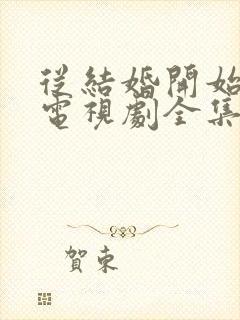 從結婚開始
電視劇全集
賀東